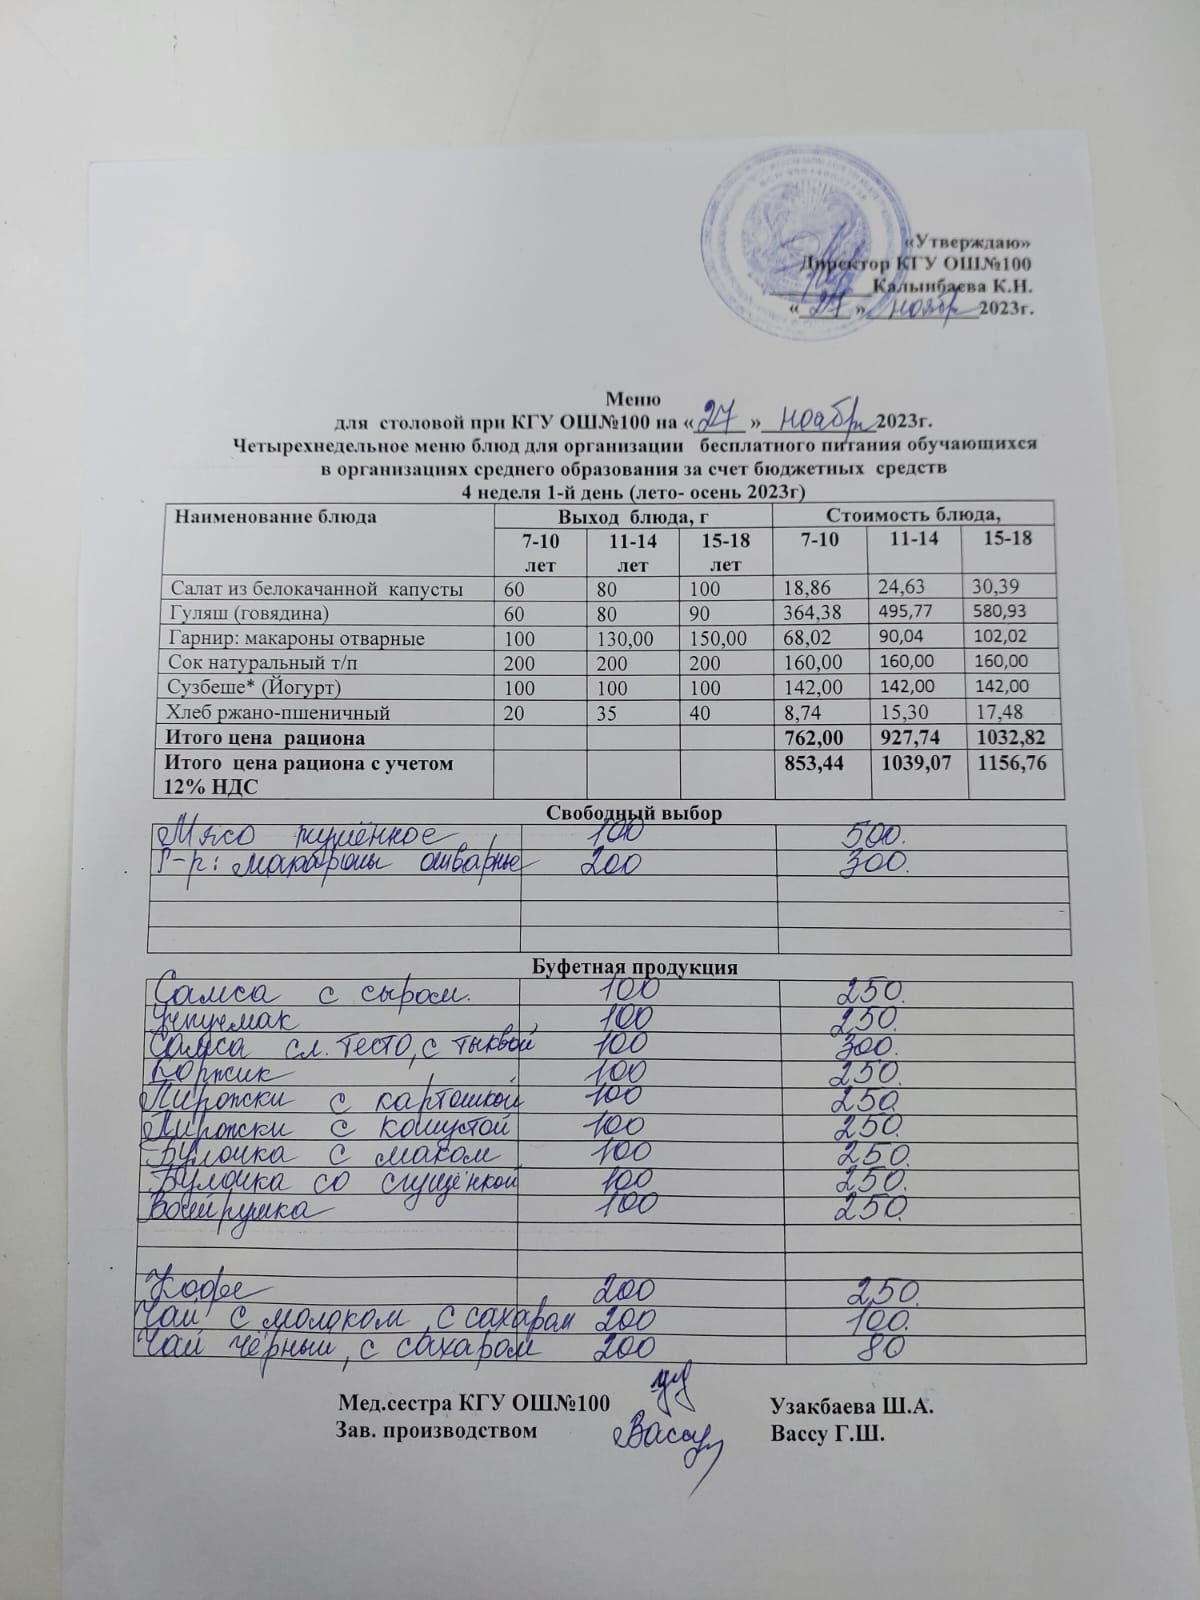 «Утверждаю»
Директор КГУ ОШ№100
__________Калынбаева К.Н.
«_27_»_ноябр_2023г.
Меню
для столовой при КГУ ОШ№100 на «_27_»_ноябр_2023г.
Четырехнедельное меню блюд для организации бесплатного питания обучающихся
в организациях среднего образования за счет бюджетных средств
4 неделя 1-й день (лето- осень 2023г)
Наименование блюда Выход блюда, г Стоимость блюда,
7-10 лет 11-14 лет 15-18 лет 7-10 11-14 15-18
Салат из белокачанной капусты 60 80 100 18,86 24,63 30,39
Гуляш (говядина) 60 80 90 364,38 495,77 580,93
Гарнир: макароны отварные 100 130,00 150,00 68,02 90,04 102,02
Сок натуральный т/п 200 200 200 160,00 160,00 160,00
Сузбеше* (Йогурт) 100 100 100 142,00 142,00 142,00
Хлеб ржано-пшеничный 20 35 40 8,74 15,30 17,48
Итого цена рациона 762,00 927,74 1032,82
Итого цена рациона с учетом 853,44 1039,07 1156,76
12% НДС
Свободный выбор
Мясо тушённое 100 500.
Г-р: макароны отварные 200 300.
Буфетная продукция
Самса с сыром. 100 250.
Учпучмак 100 250.
Самса сл. тесто, с тыквой 100 300.
Коржик 100 250.
Пирожки с картошкой 100 250.
Пирожки с капустой 100 250.
Булочка с маком 100 250.
Булочка со сгущёнкой 100 250.
Ватрушка 100 250.
Кофе 200 250.
Чай с молоком, с сахаром 200 100.
Чай чёрный, с сахаром 200 80
Мед.сестра КГУ ОШ№100 Узакбаева Ш.А.
Зав. производством Вассу Вассу Г.Ш.